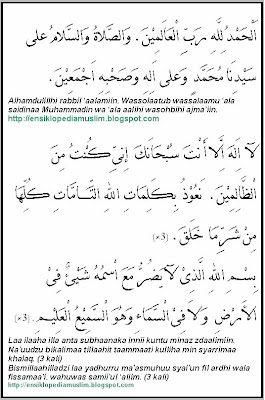 اَلْحَمْدُ لِلّٰهِ رَبِّ الْعَالَمِيْنَ . وَالصَّلَاةُ وَالسَّلَامُ عَلَى
سَيِّدِنَا مُحَمَّدٍ وَعَلَى اٰلِهِ وَصَحْبِهِ اَجْمَعِيْنَ .
Alhamdulillhi rabbil 'aalamiin. Wassolaatub wassalaamu 'ala
saidinaa Muhammadin wa 'ala aalihi wasohbihi ajma'iin.
http://ensiklopediamuslim.blogspot.com
لَا اِلٰهَ اِلَّا اَنْتَ سُبْحَانَكَ اِنِّى كُنْتُ مِنَ
الظَّالِمِيْنَ . نَعُوْذُ بِكَلِمَاتِ اللهِ التَّامَّاتِ كُلِّهَا
مِنْ شَرِّ مَا خَلَقَ . (×٣)
بِسْمِ اللهِ الَّذِىْ لَا يَضُرُّ مَعَ اسْمِهِ شَيْئٌ فِى
الْاَرْضِ وَلَا فِى السَّمَاءِ وَهُوَ السَّمِيْعُ الْعَلِيْمُ . (×٣)
Laa ilaaha illa anta subhaanaka innii kuntu minaz dzaalimiin.
Na'uudzu bikalimaa tillaahit taammaati kulliha min syarrimaa
khalaq. (3 kali)
Bismillaahilladzi laa yadhurru ma'asmuhuu syai'un fil ardhi wala
fissamaa'i. wahuwas samii'ul 'aliim. (3 kali)
http://ensiklopediamuslim.blogspot.com